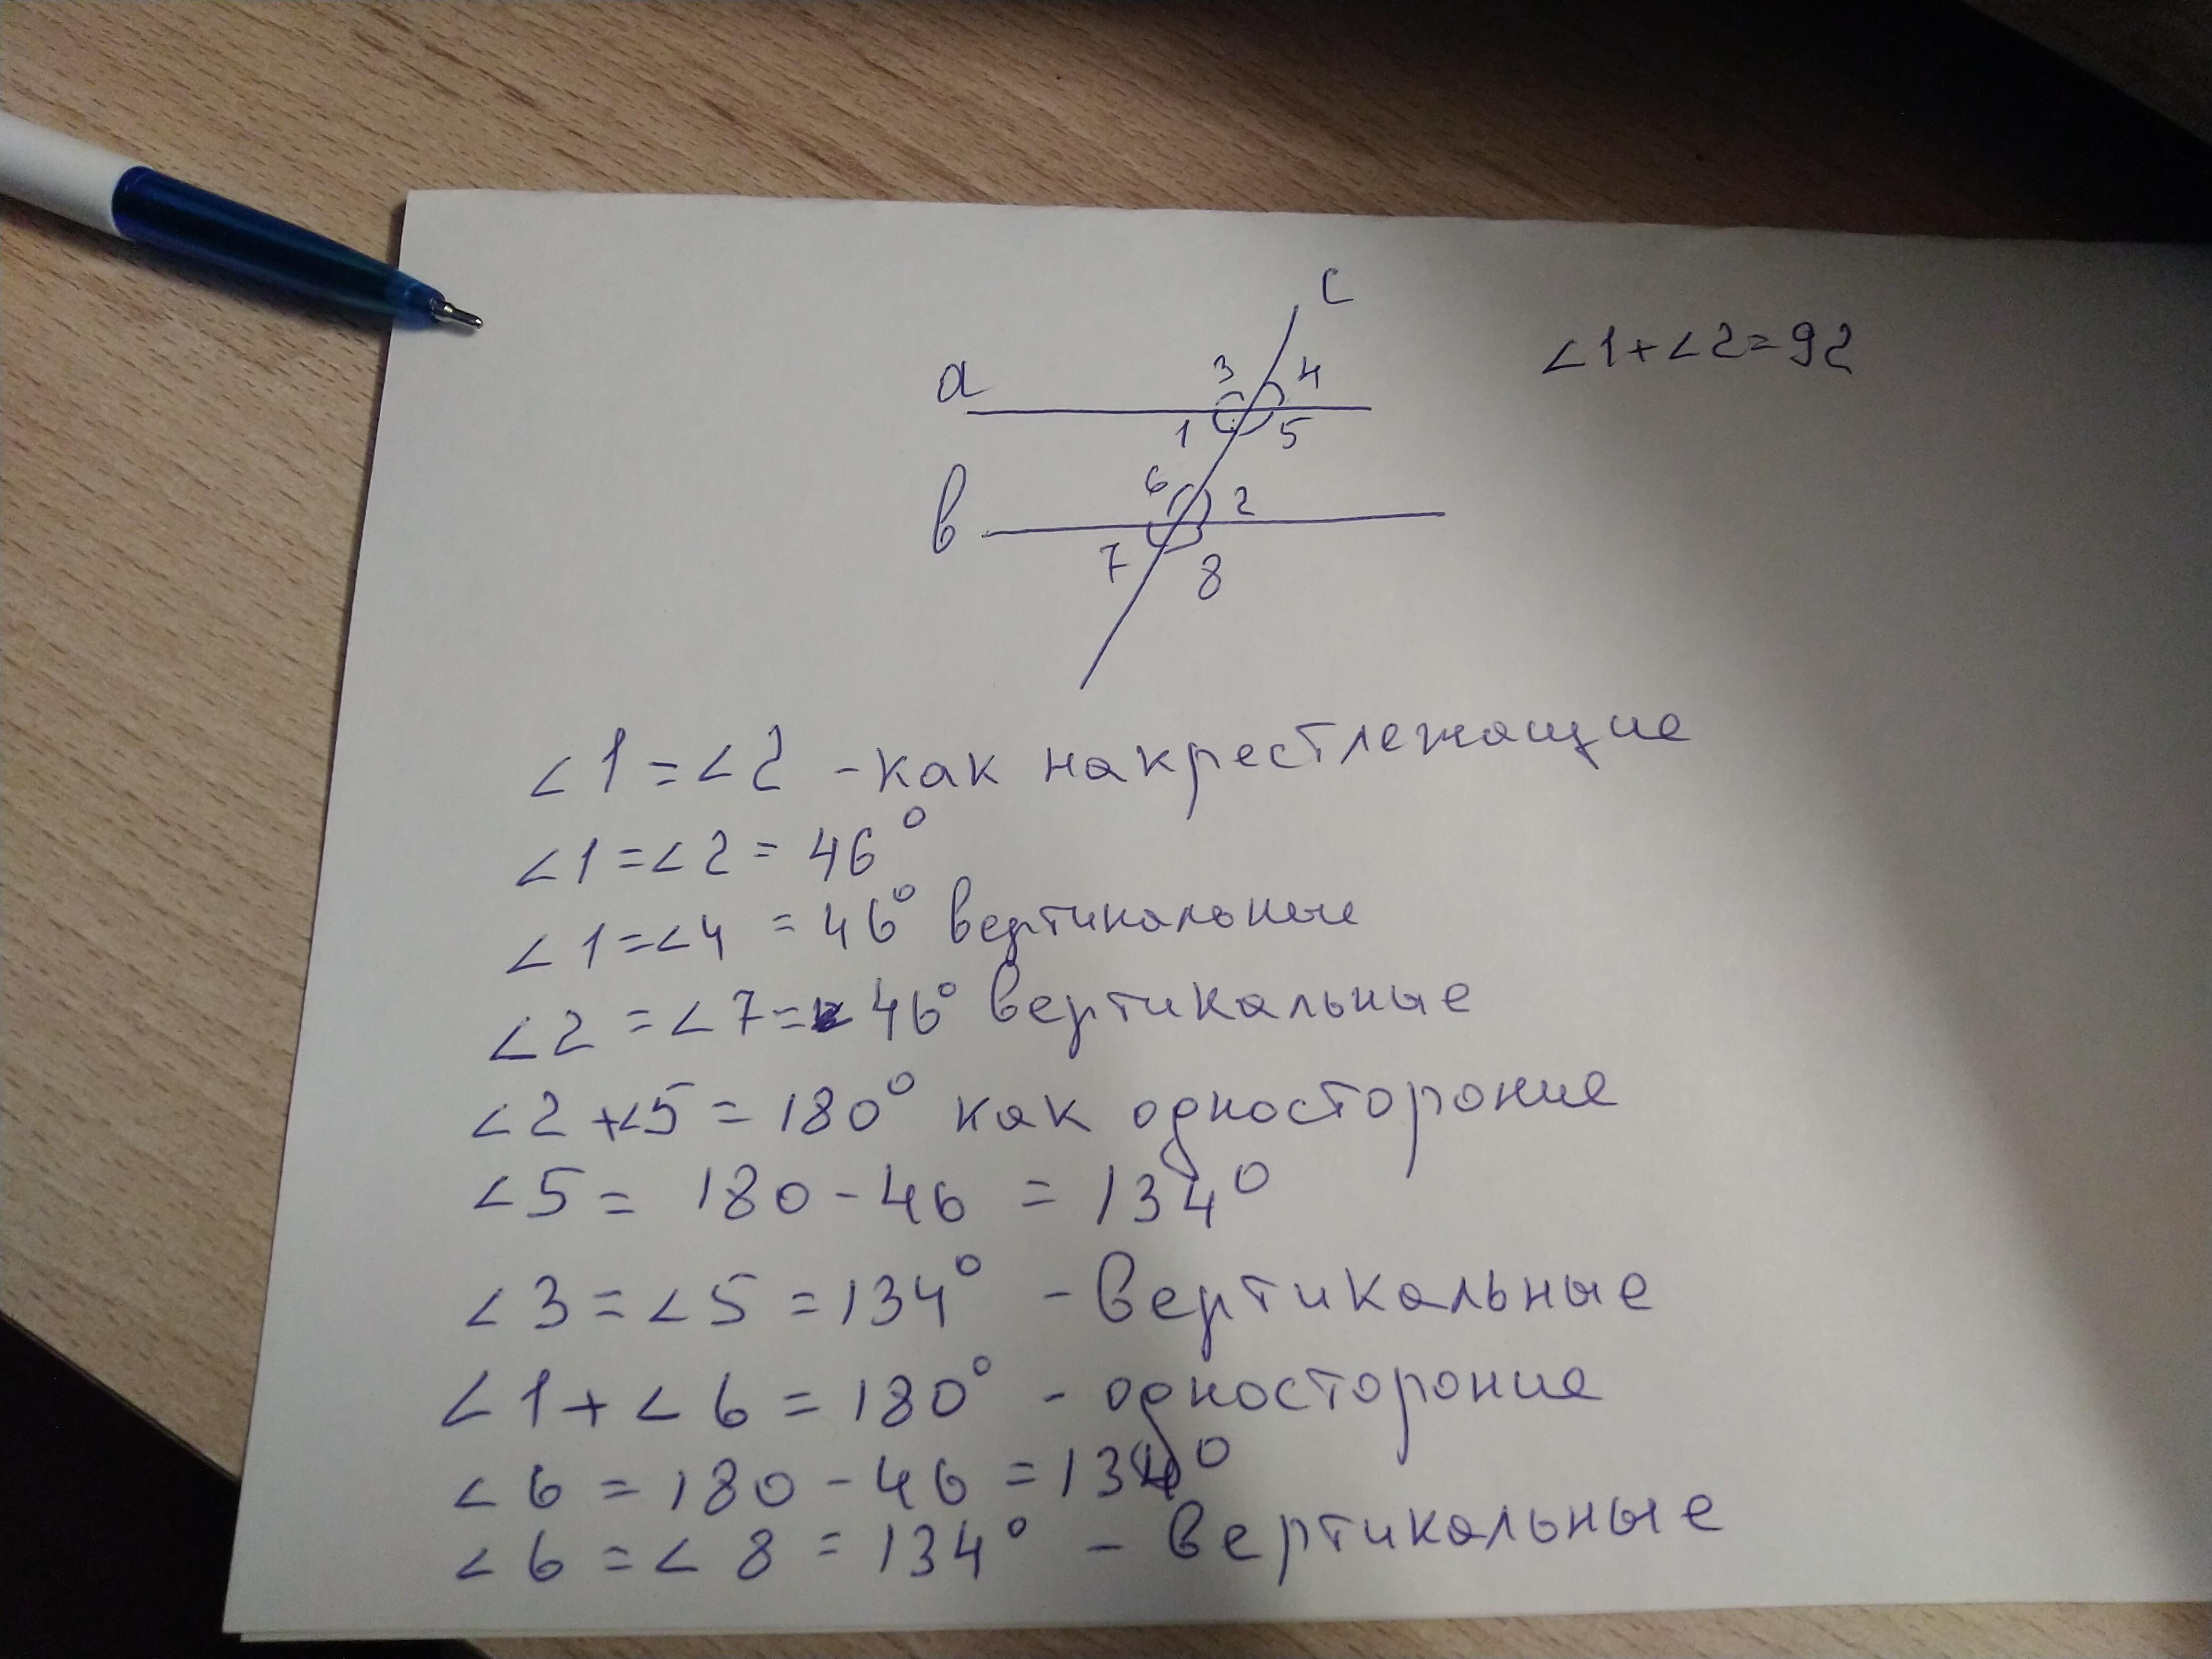 c
∠1+∠2=92
a
3 4
1 5
6 2
в
7 8
∠1=∠2 -как накрестлежащие
∠1=∠2= 46°
∠1=∠4 =46° вертикальные
∠2 =∠7= 46° вертикальные
∠2+∠5=180° как одностороние
∠5= 180-46 =134°
∠3=∠5=134° -вертикальные
∠1+∠6=180° -одностороние
∠6=180-46=134°
∠6=∠8=134° -вертикальные